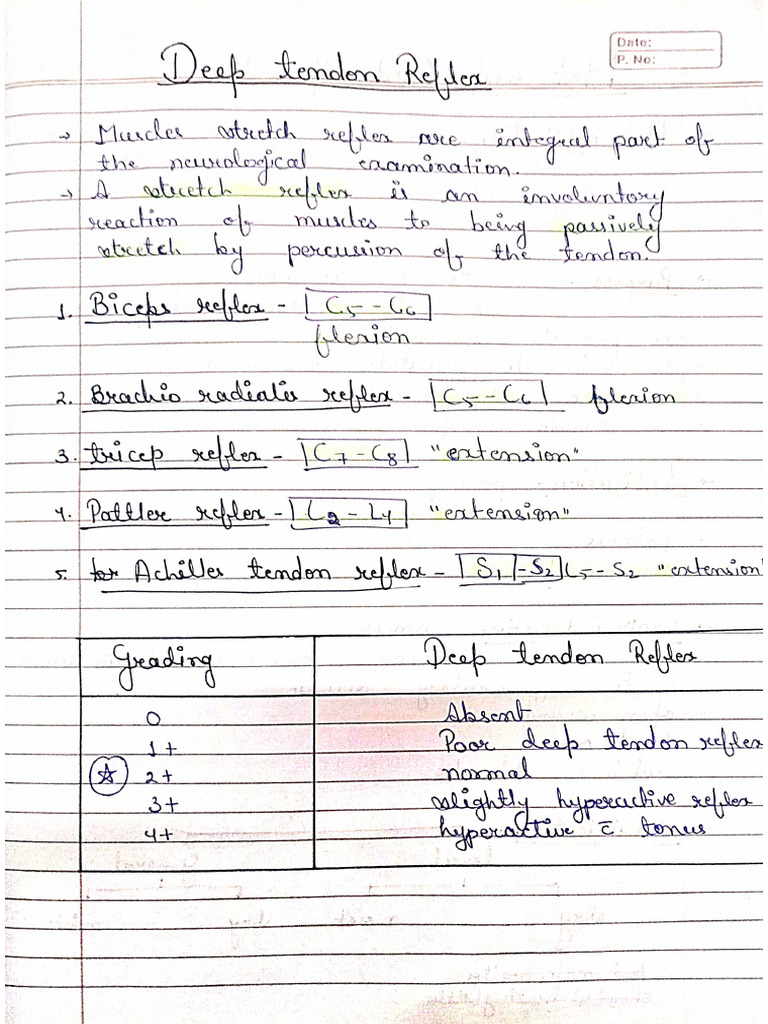 Date:
P. No:
Deep tendon Reflex
→ Muscles stretch reflex are integral part of
the neurological examination.
→ A stretch reflex is an involuntory
reaction of muscles to being passively
stretch by percussion of the tendon.
1. Biceps reflex - C5 -- C6
flexion
2. Brachio radialis reflex - C5 -- C6 flexion
3. tricep reflex - C7 - C8 "extension"
4. Pattler reflex - L2 - L4 "extension"
5. Achilles tendon reflex - S1 - S2 L5 -- S2 "extension"
Grading Deep tendon Reflex
0 Absent
1+ Poor deep tendon reflex
☆ 2+ normal
3+ slightly hyperactive reflex
4+ hyperactive c̄ tonus